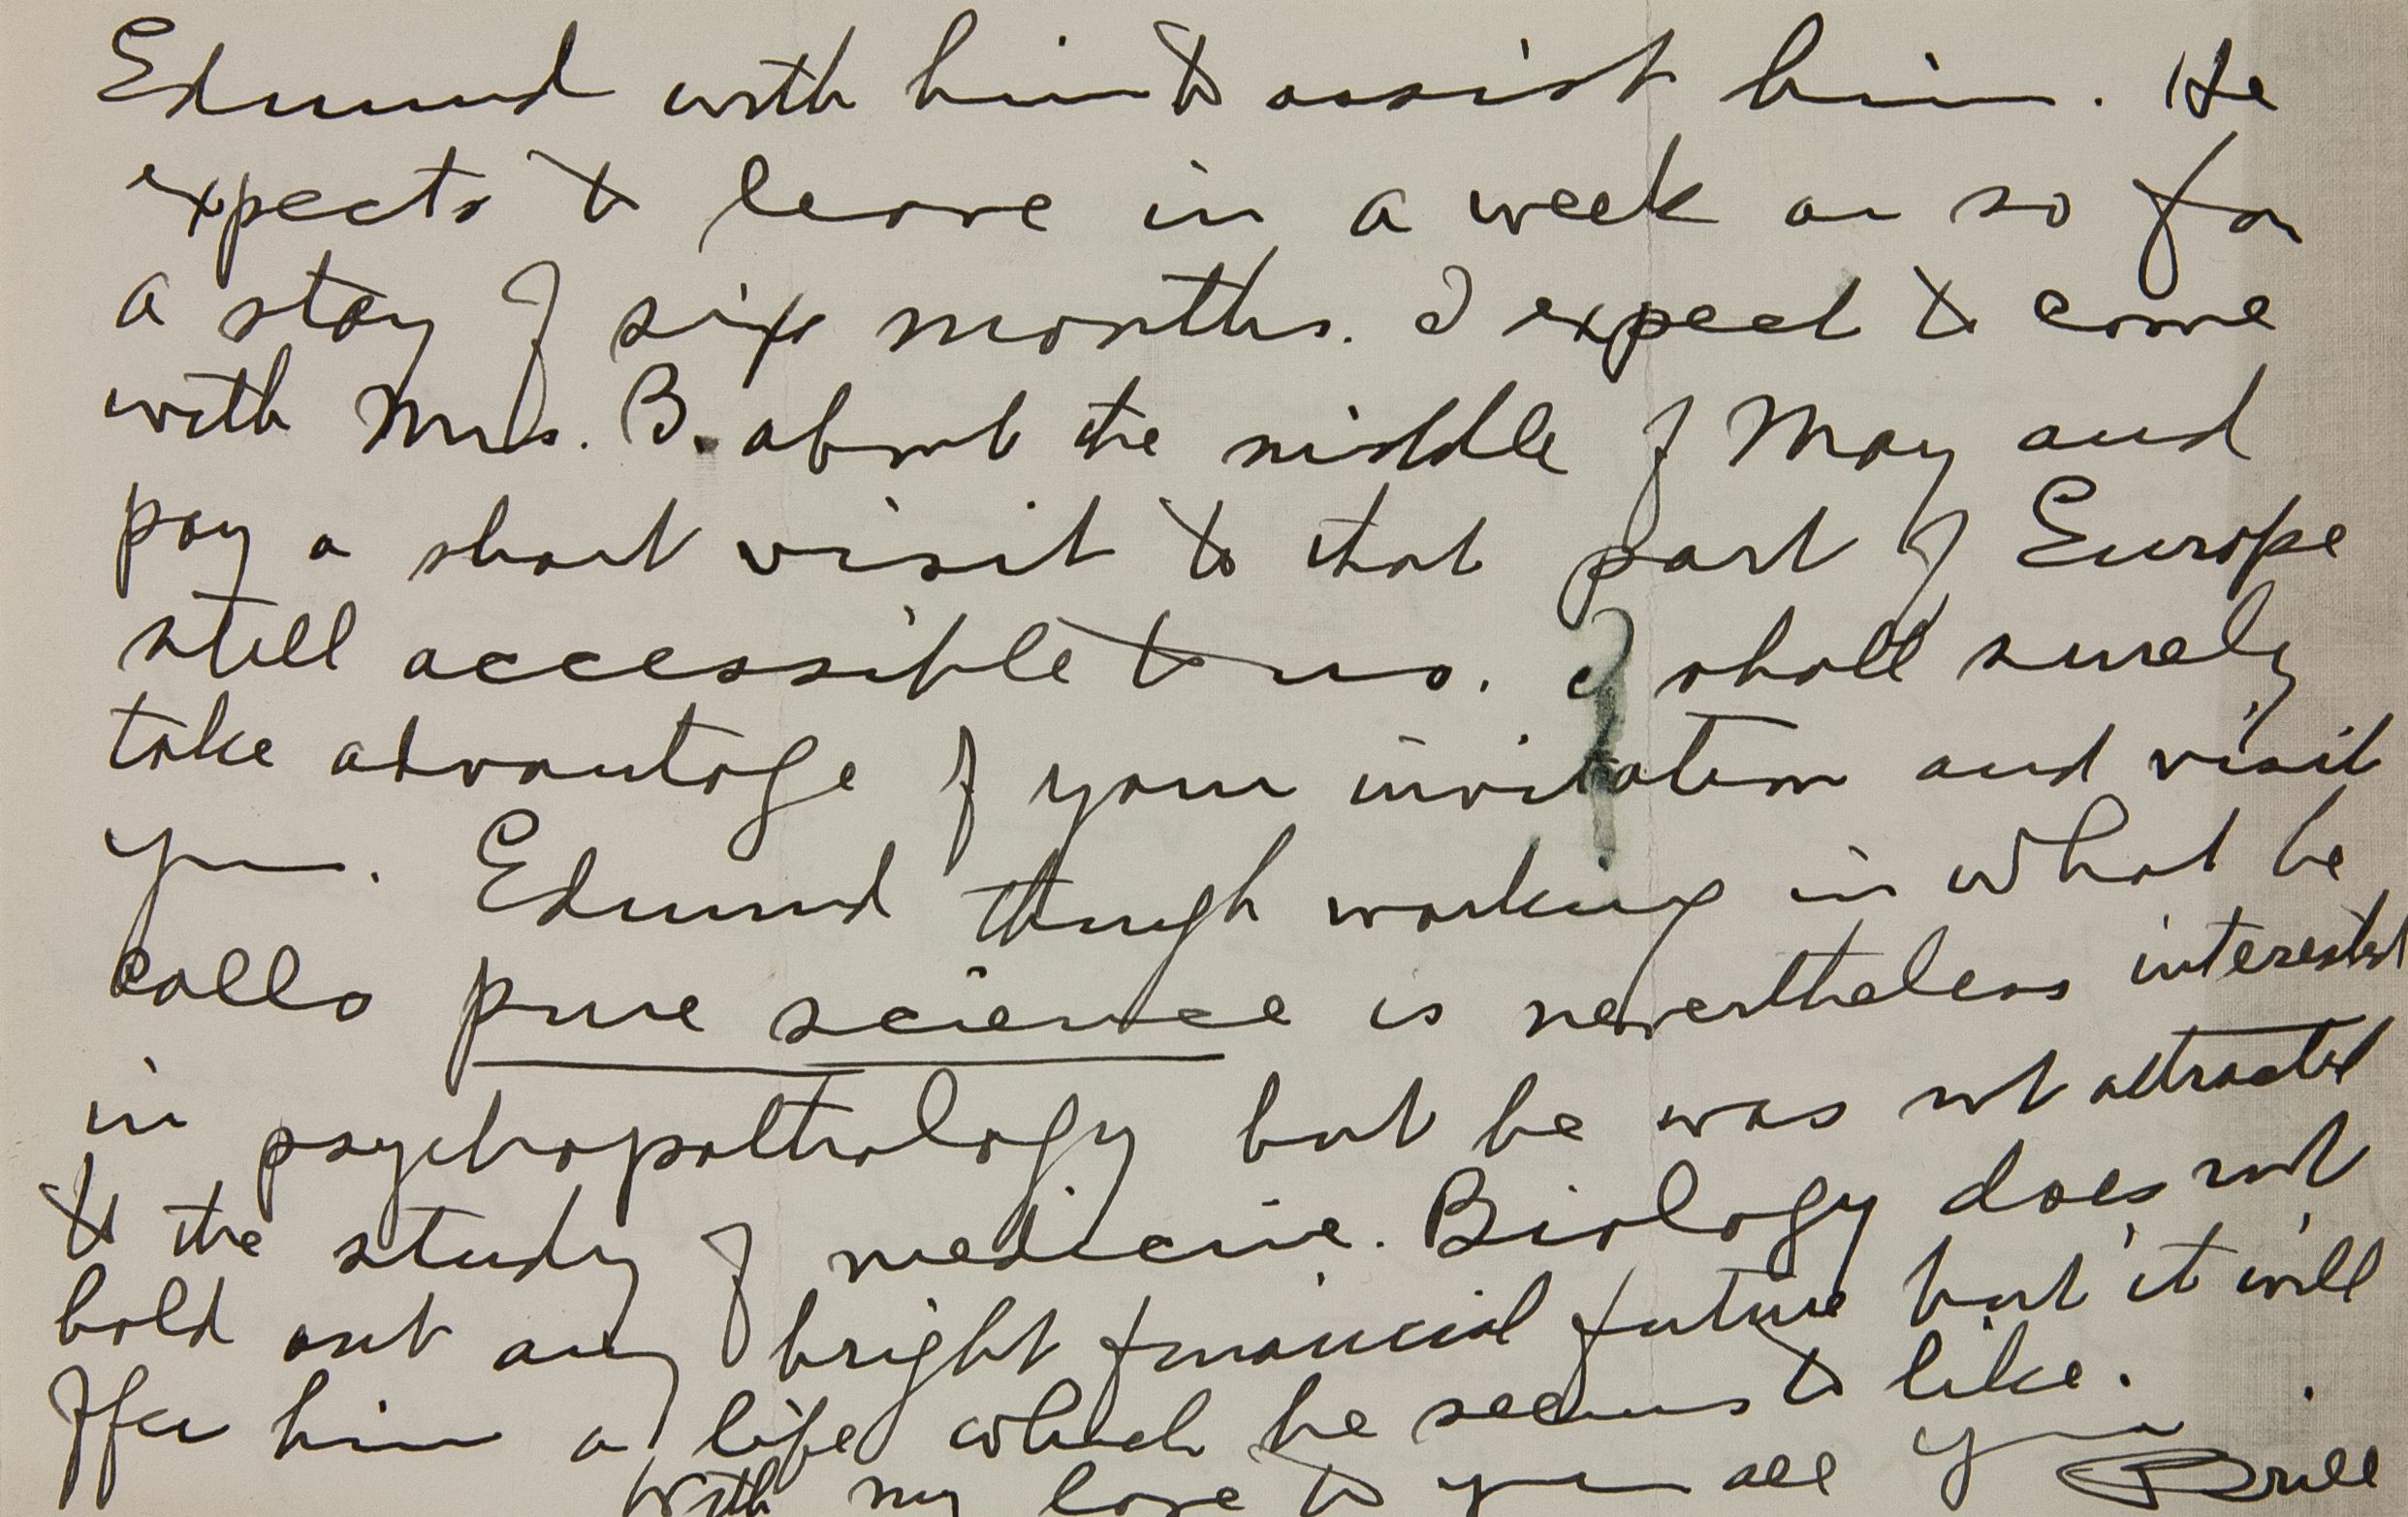 Edmund with him to assist him. He
expects to leave in a week or so for
a stay of six months. I expect to come
with Mrs. B. about the middle of May and
pay a short visit to that part of Europe
still accessible to us. I shall surely
take advantage of your invitation and visit
you. Edmund though working in what he
calls pure science is nevertheless interested
in psychopathology but he was not attracted
to the study of medicine. Biology does not
hold out any bright financial future but it will
offer him a life which he seems to like.
With my love to you all Your Brill